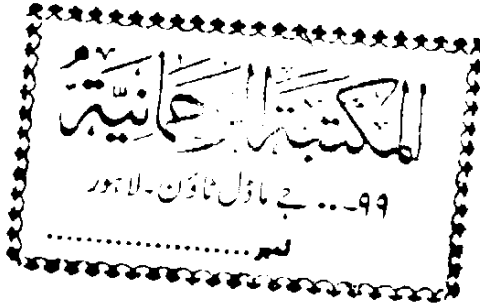 المكتبة الرحمانية
۹۹-.. جے ماڈل ٹاؤن - لاہور
نمبر.....................